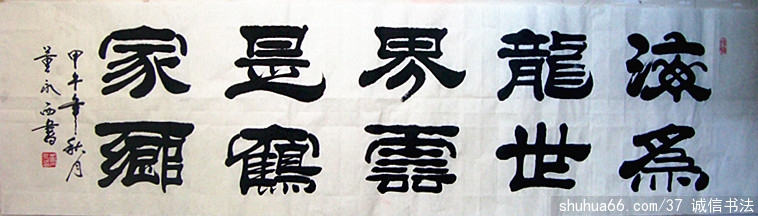 海為
龍世
界雲
是鶴
家鄉
甲午年秋月
董永西書
shuhua66.com/37 诚信书法